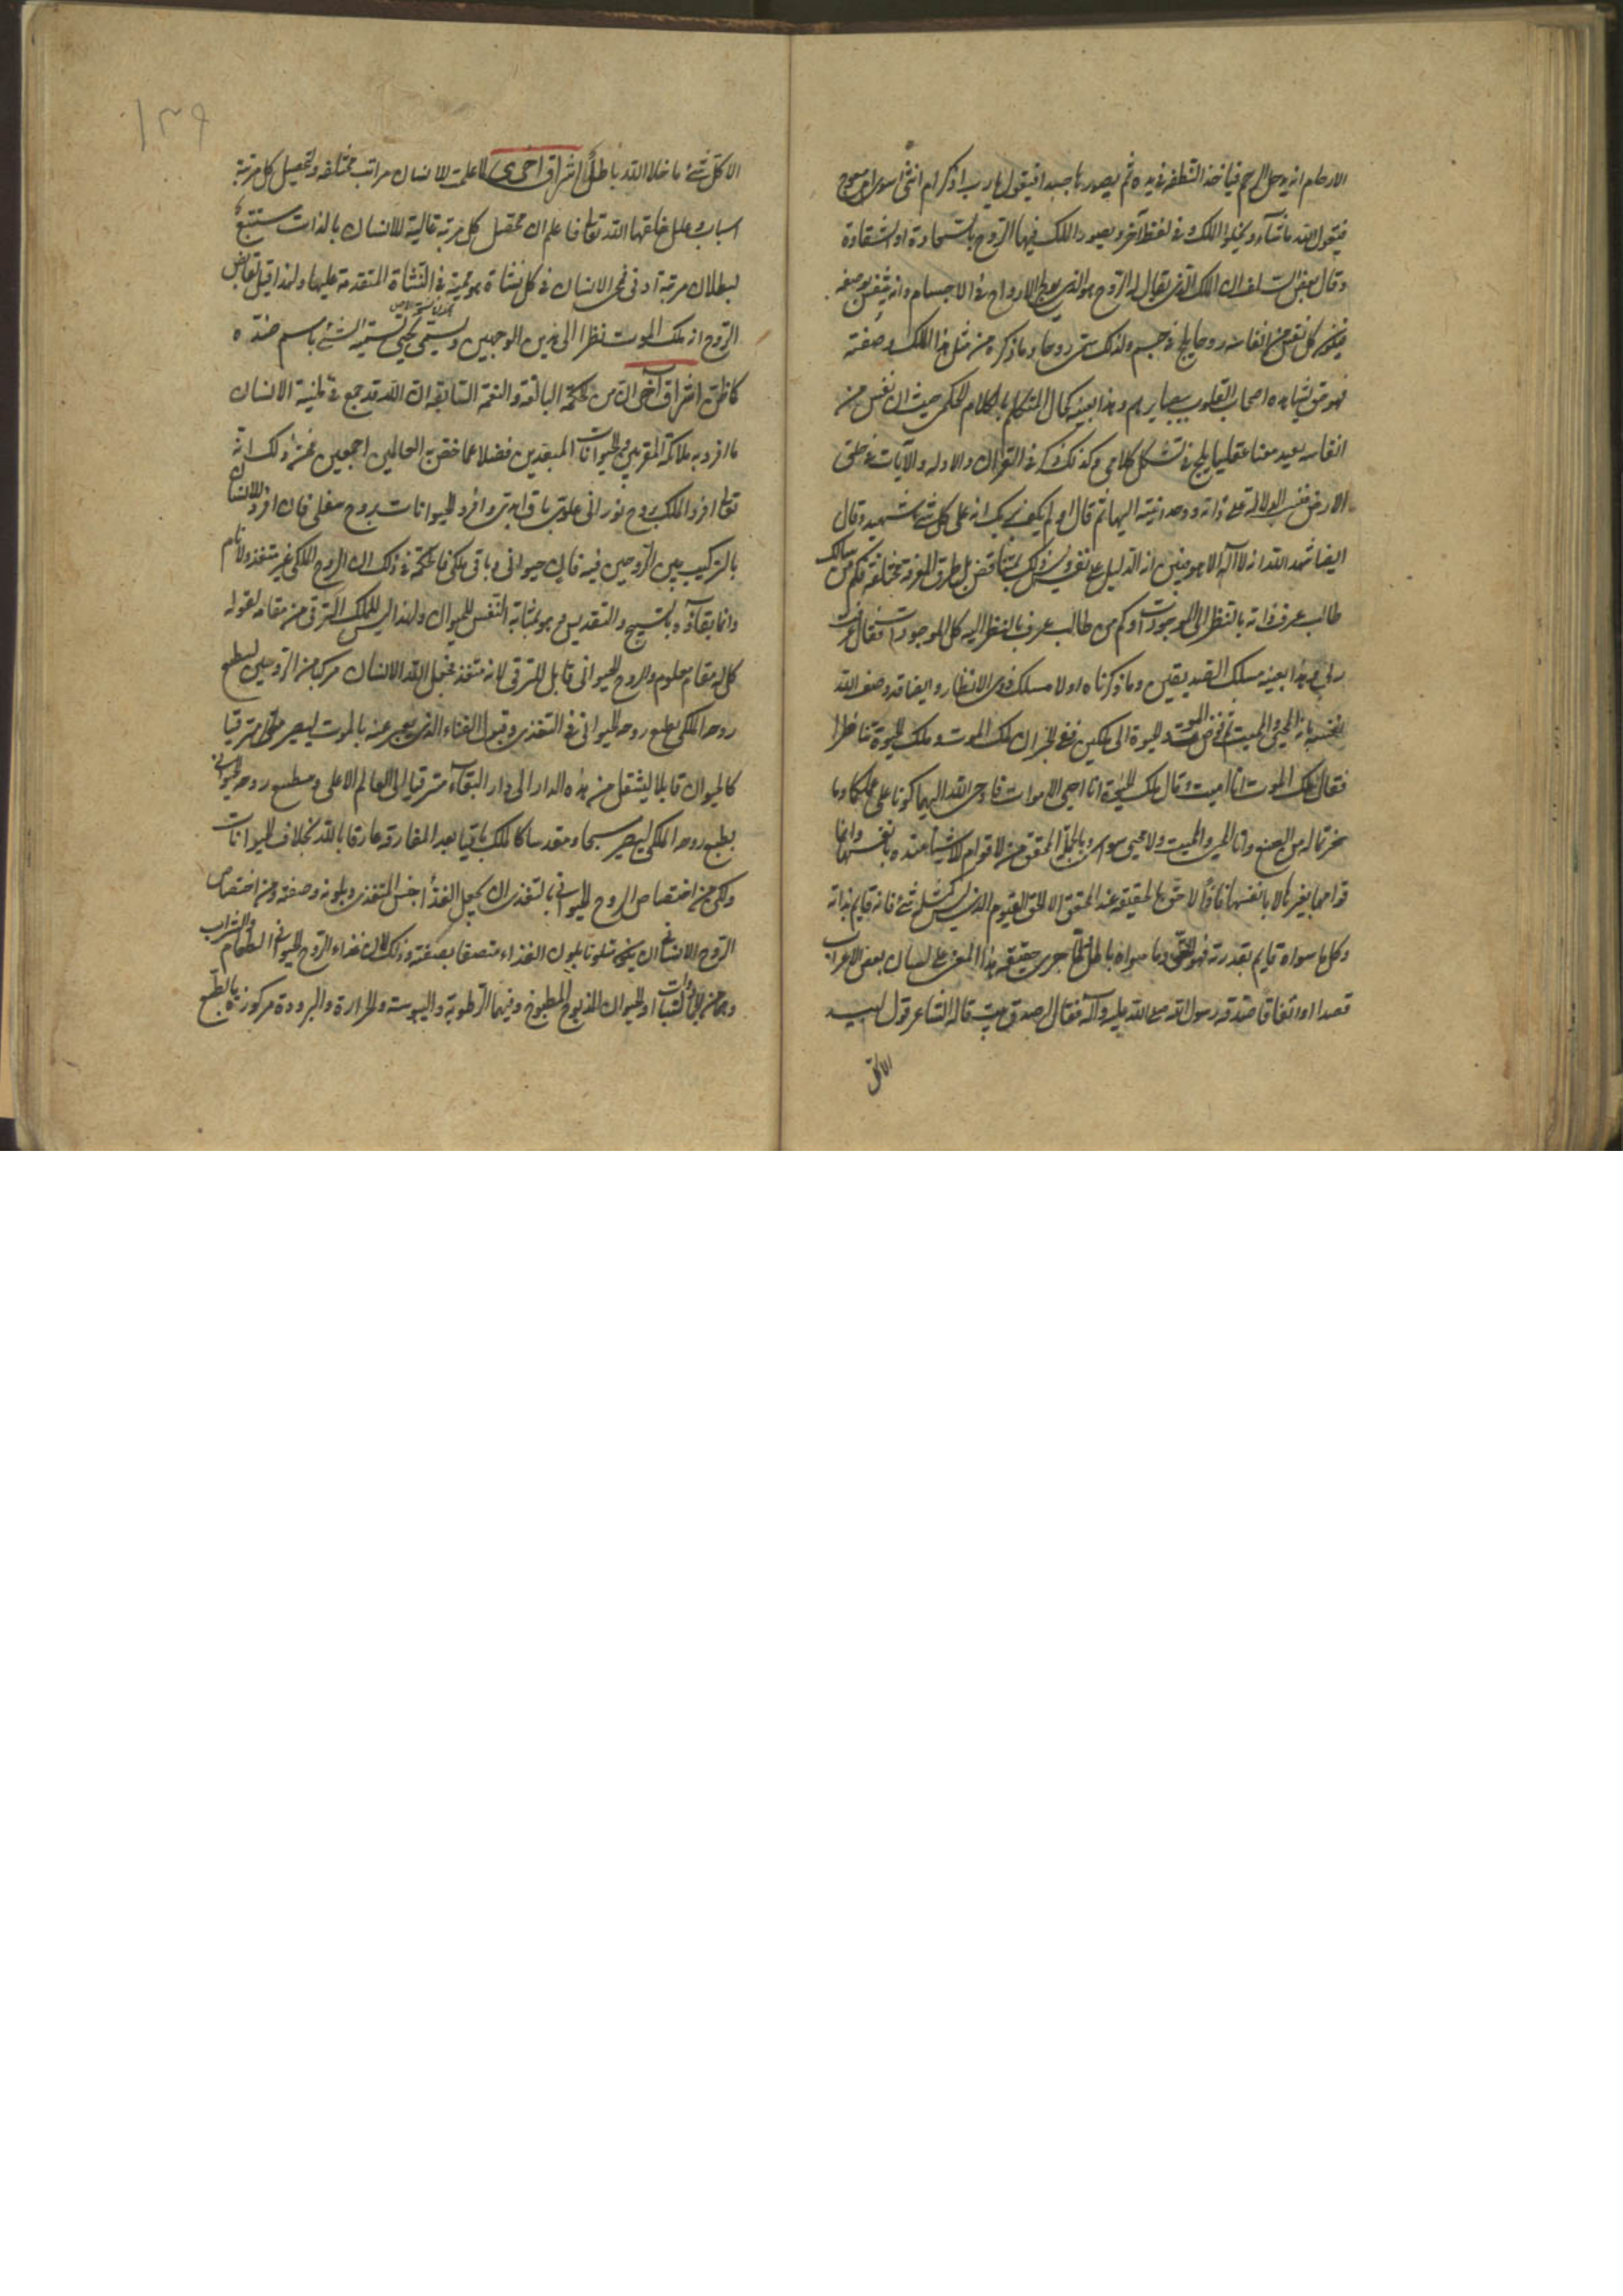 الارحام انه يدخل الرحم فيأخذ النطفة في يده ثم يصورها جسدا فيقول يا رب اذكر ام انثى اسوى ام معوج
فيقول الله ما شاء ويخلق الملك وفي لفظ آخر ويصور الملك فيها الروح بالسعادة او الشقاوة
وقال بعض السلف ان الملك الذي يقال له الروح هو الذي يولج الارواح في الاجسام وانه يتنفس بوصفه
فيكون كل نفس من انفاسه روحا يلج في جسم ولذلك سمي روحا وما ذكره من مثل هذا الملك وصفته
فهو حق يشاهده اصحاب القلوب ببصايرهم وهذا بعينه كحال المتكلم بالكلام الحكمي حيث ان كل نفس من
انفاسه يصير معنا عقليا يلج في شكل كلامي وكذلك ذكر في القرآن والادلة والآيات في خلق
الارض فنسب الدلالة على ذاته ووحدانيته اليها ثم قال اولم يكف بربك انه على كل شئ شهيد وقال
ايضا شهد الله انه لا اله الا هو فبين انه الدليل على نفسه وليس ذلك بمتناقض بل طرق المعرفة مختلفة فكم من سالك
طالب عرف ذاته بالنظر الى الموجودات وكم من طالب عرف بالنظر اليه كل الموجودات فقال عرفت
ربي بربي هذا بعينه مسلك الصديقين وما ذكرناه اولا مسلك ذوي الانظار وايضا قد وصف الله
نفسه بانه المحيي والمميت ثم فوض الموت والحيوة الى ملكين ففي الخبر ان ملك الموت وملك الحيوة تناظرا
فقال ملك الموت انا اميت وقال ملك الحيوة انا احيي الاموات فاوحى الله اليهما كونا على عملكما وما
سخرتما له من الصنع وانا المحيي والمميت ولا محيي سواي وبالجملة المحقق من لا قوام للاشياء عنده بانفسها وانما
قوامها بغيرها لا بانفسها فاذا لا حق بالحقيقة عند المحقق الا الحق القيوم الذي ليس كمثله شئ فانه قايم بذاته
وكل ما سواه قايم بقدرته فهو الحق وما سواه باطل كما جرى حقيقة هذا المعنى على لسان بعض الاعراب
قصدا او اتفاقا صدقه رسول الله صلى الله عليه وآله فقال اصدق بيت قاله الشاعر قول لبيد
الا كل
١٣٩
الا كل شئ ما خلا الله باطل اشراق آخر لما علمت للانسان مراتب مختلفة ولتحصيل كل مرتبة
اسباب وعلل خلقها الله تعالى فاعلم ان محصل كل مرتبة عالية للانسان بالذات مستتبع
لبطلان مرتبة ادنى فمحيي الانسان في كل نشاة هو مميته في النشاة المتقدمة عليها ولهذا قيل لقابض
الروح انه ملك الموت نظرا الى هذين الوجهين وليسمى يحيى تسمية الشئ باسم ضده
كما ظن اشراق آخر ان من الحكمة البالغة والنعم السابغة ان الله قد جمع في طينة الانسان
ما افرد به ملائكته المقربين والحيوانات المبعدين فضلا عما خص به العالمين اجمعين فمن ذلك انه
تعالى افرد الملك بروح نوراني علوي باق ابدي وافرد الحيوانات بروح سفلي فان وافرد الانسان
بالتركيب بين الروحين فيه فان حيواني وباق ملكي فالحكمة في ذلك ان الروح الملكي غير متغذ ولا نام
وانما بقاؤه بالتسبيح والتقديس وهو بمثابة التنفس للحيوان ولهذا ليس للملك الترقي من مقامه لقوله
كل له مقام معلوم والروح الحيواني قابل للترقي لانه متغذ فجعل الله الانسان مركبا من الروحين ليطبع
روحه الملكي بطبع روحه الحيواني في التغذي وقبول الفناء الذي يعبر عنه بالموت ليصير مترقيا
كالحيوان قابلا لينتقل من هذه الدار الى دار البقاء مترقيا الى العالم الاعلى ومطبع روحه الحيواني
بطبع روحه الملكي ليصير مسبحا ومقدسا كالملك باقيا بعد المفارقة عارفا بالله بخلاف الحيوانات
ولكن من اختصاص الروح الحيواني بالتغذي ان يجعل الغذاء جنس المتغذي وبلونه وصفته ومن اختصاص
الروح الانساني ان يكون متلونا بلون الغذاء متصفا بصفته وذلك لان غذاء الروح الحيواني الطعام والشراب
وهما من النبات او الحيوان المذبوح المطبوخ وفيهما الرطوبة واليبوسة والحرارة والبرودة مركوزة بالطبع